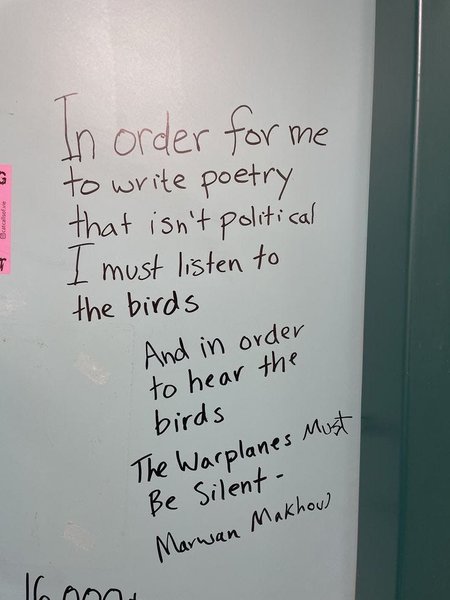 In order for me
to write poetry
that isn't political
I must listen to
the birds
And in order
to hear the
birds
The Warplanes Must
Be Silent -
Marwan Makhoul
16,000+